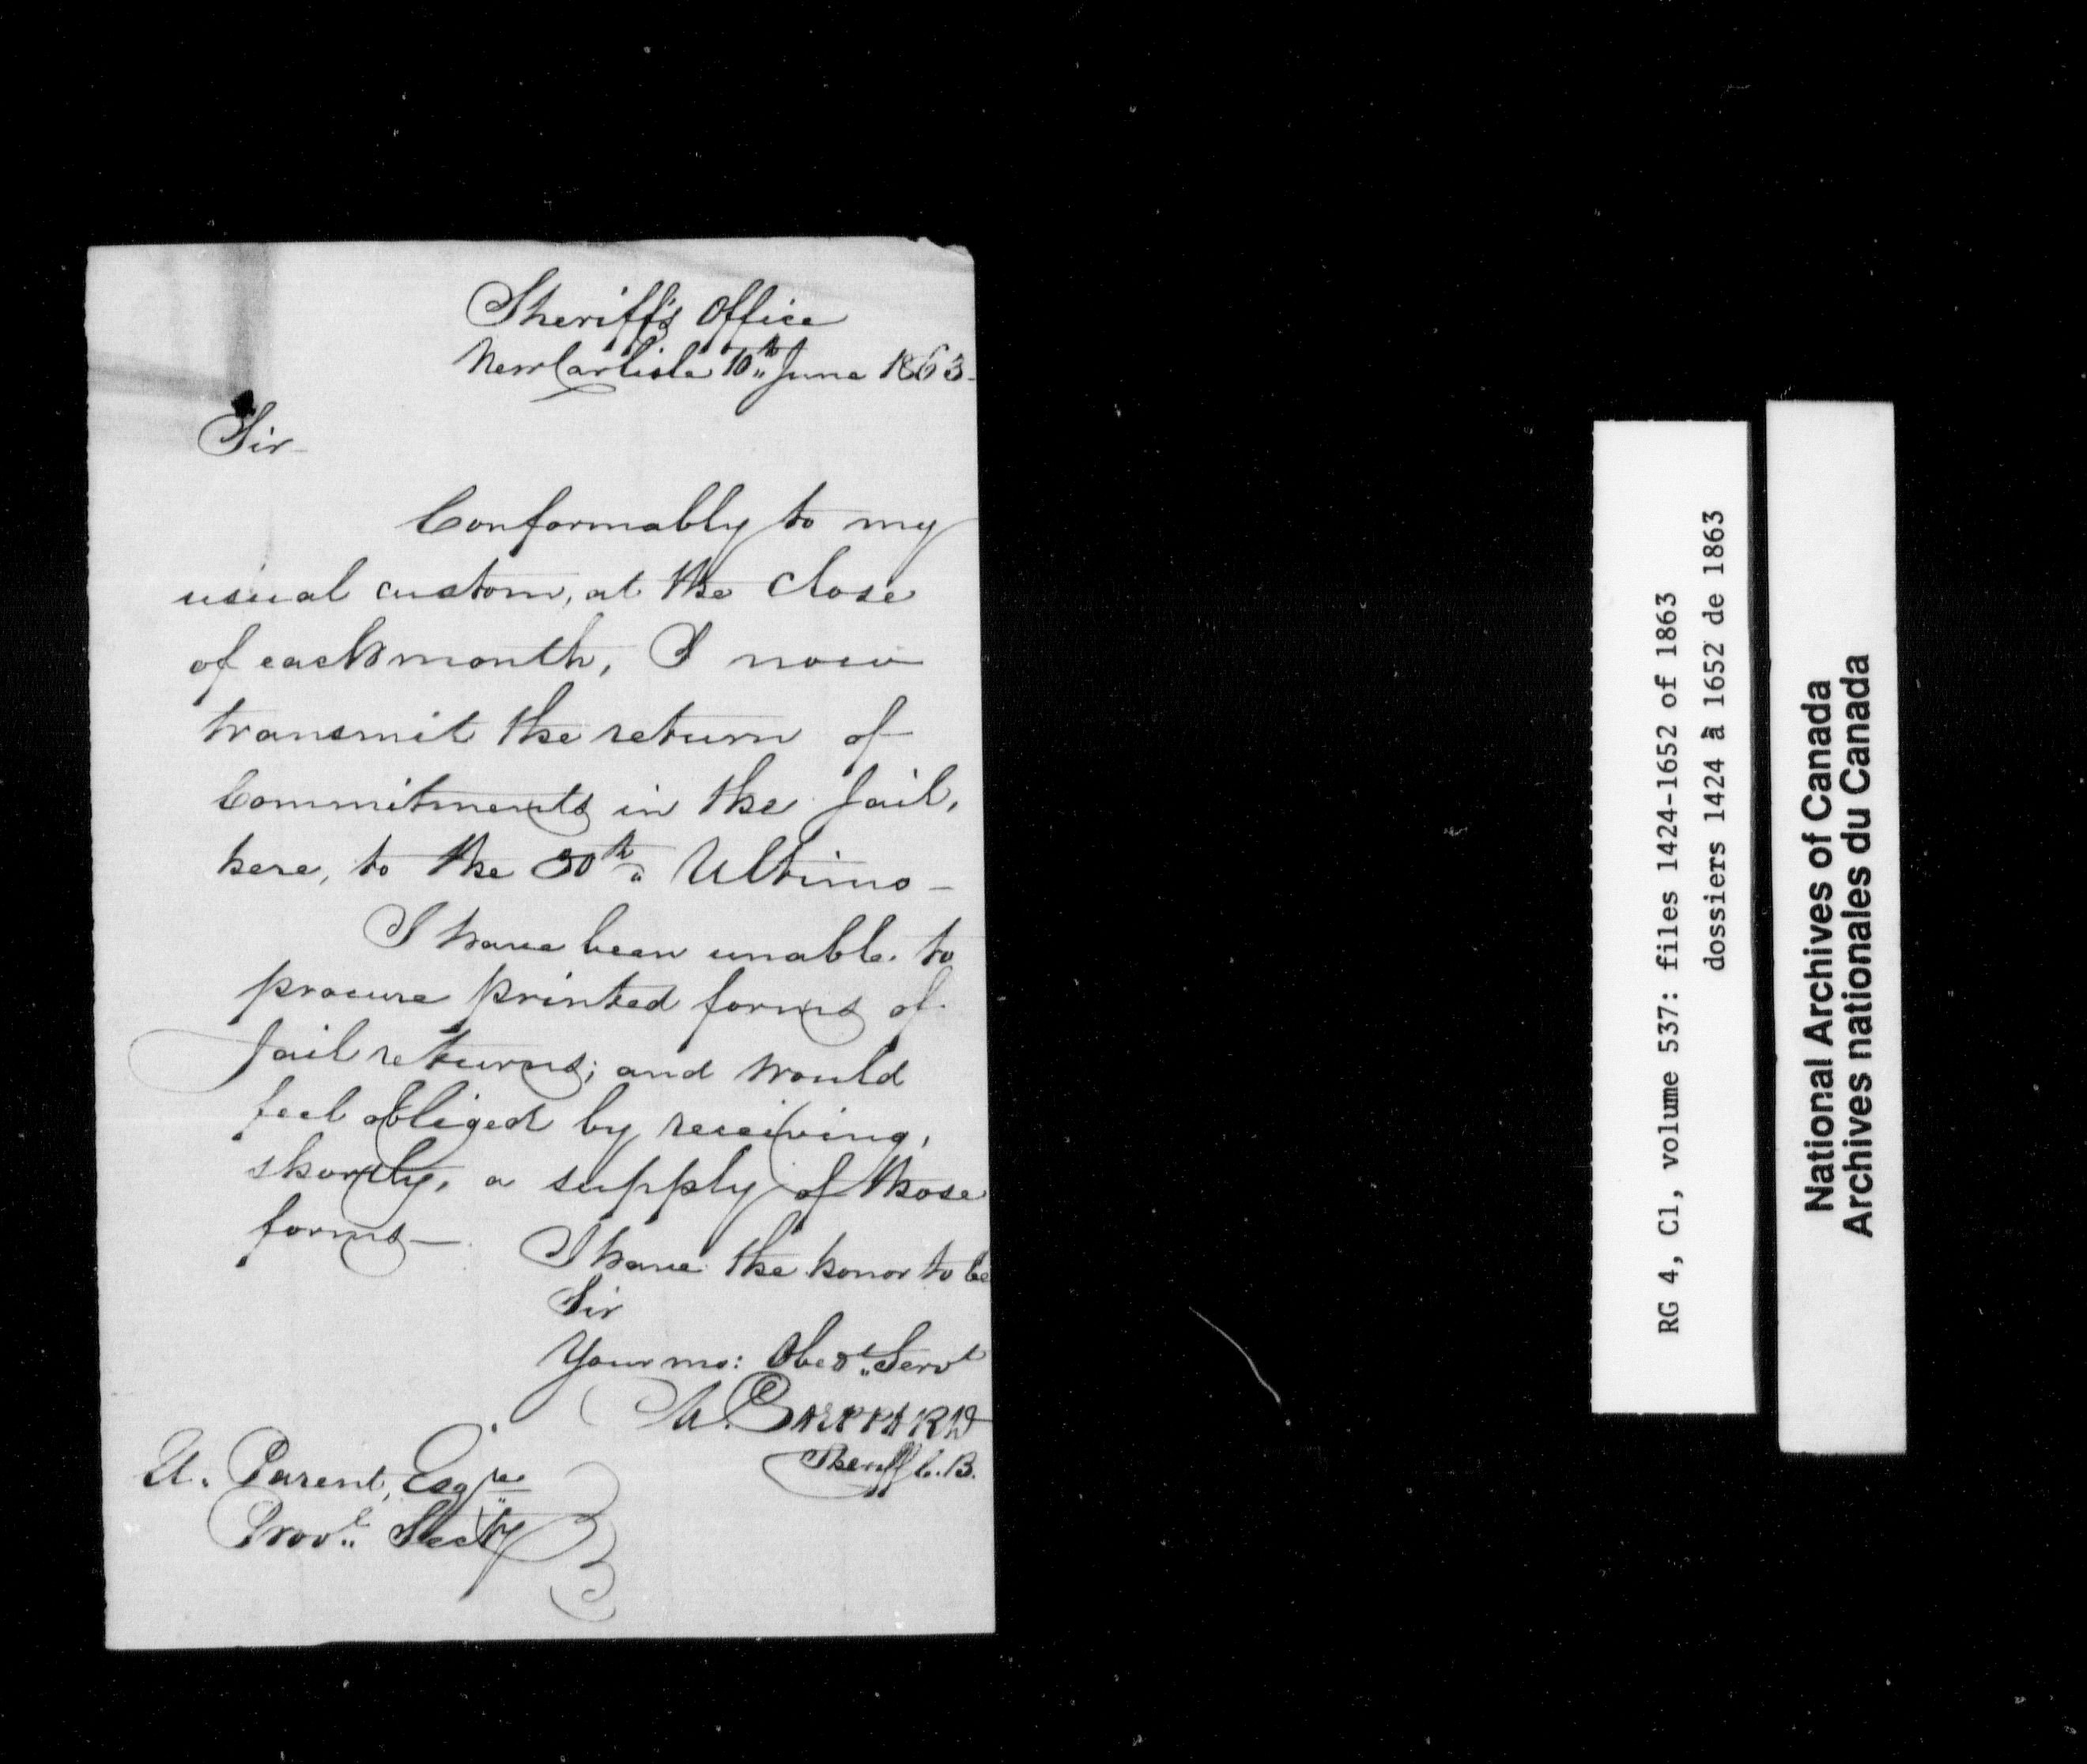 Sheriff's Office
New Carlisle 10th June 1863-
Sir
Conformably to my
usual custom, at the close
of each month, I now
transmit the return of
Commitments in the Jail,
here, to the 30th Ultimo -
I have been unable to
procure printed forms of
Jail returns; and would
feel obliged by receiving,
shortly, a supply of those
forms -
I have the honor to be
Sir
Your mo: Obedt. Servt
Sheriff C.B.
Parent, Esqre
Provl. Secty
RG 4, C1, volume 537: files 1424-1652 of 1863
dossiers 1424 à 1652 de 1863
National Archives of Canada
Archives nationales du Canada